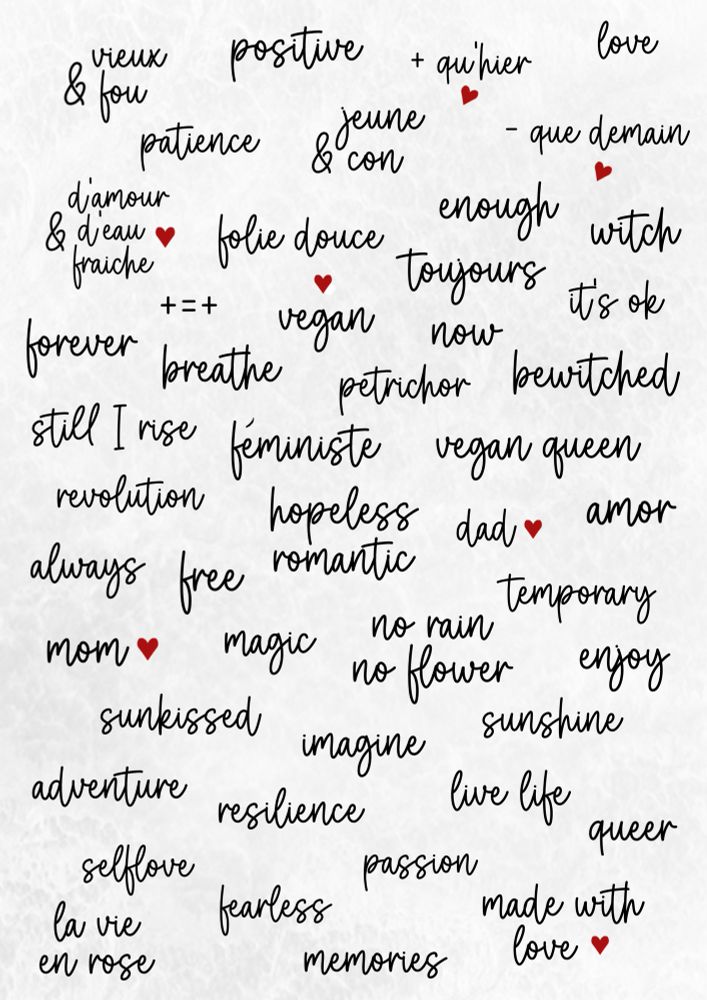 vieux
& fou
positive
+ qu'hier
love
patience
jeune
& con
- que demain
d'amour
& d'eau
fraiche
folie douce
enough
witch
toujours
+=+
vegan
it's ok
forever
now
breathe
petrichor
bewitched
still I rise
féministe
vegan queen
revolution
hopeless
romantic
dad
amor
always
free
temporary
mom
magic
no rain
no flower
enjoy
sunkissed
imagine
sunshine
adventure
resilience
live life
queer
selflove
passion
fearless
made with
love
la vie
en rose
memories